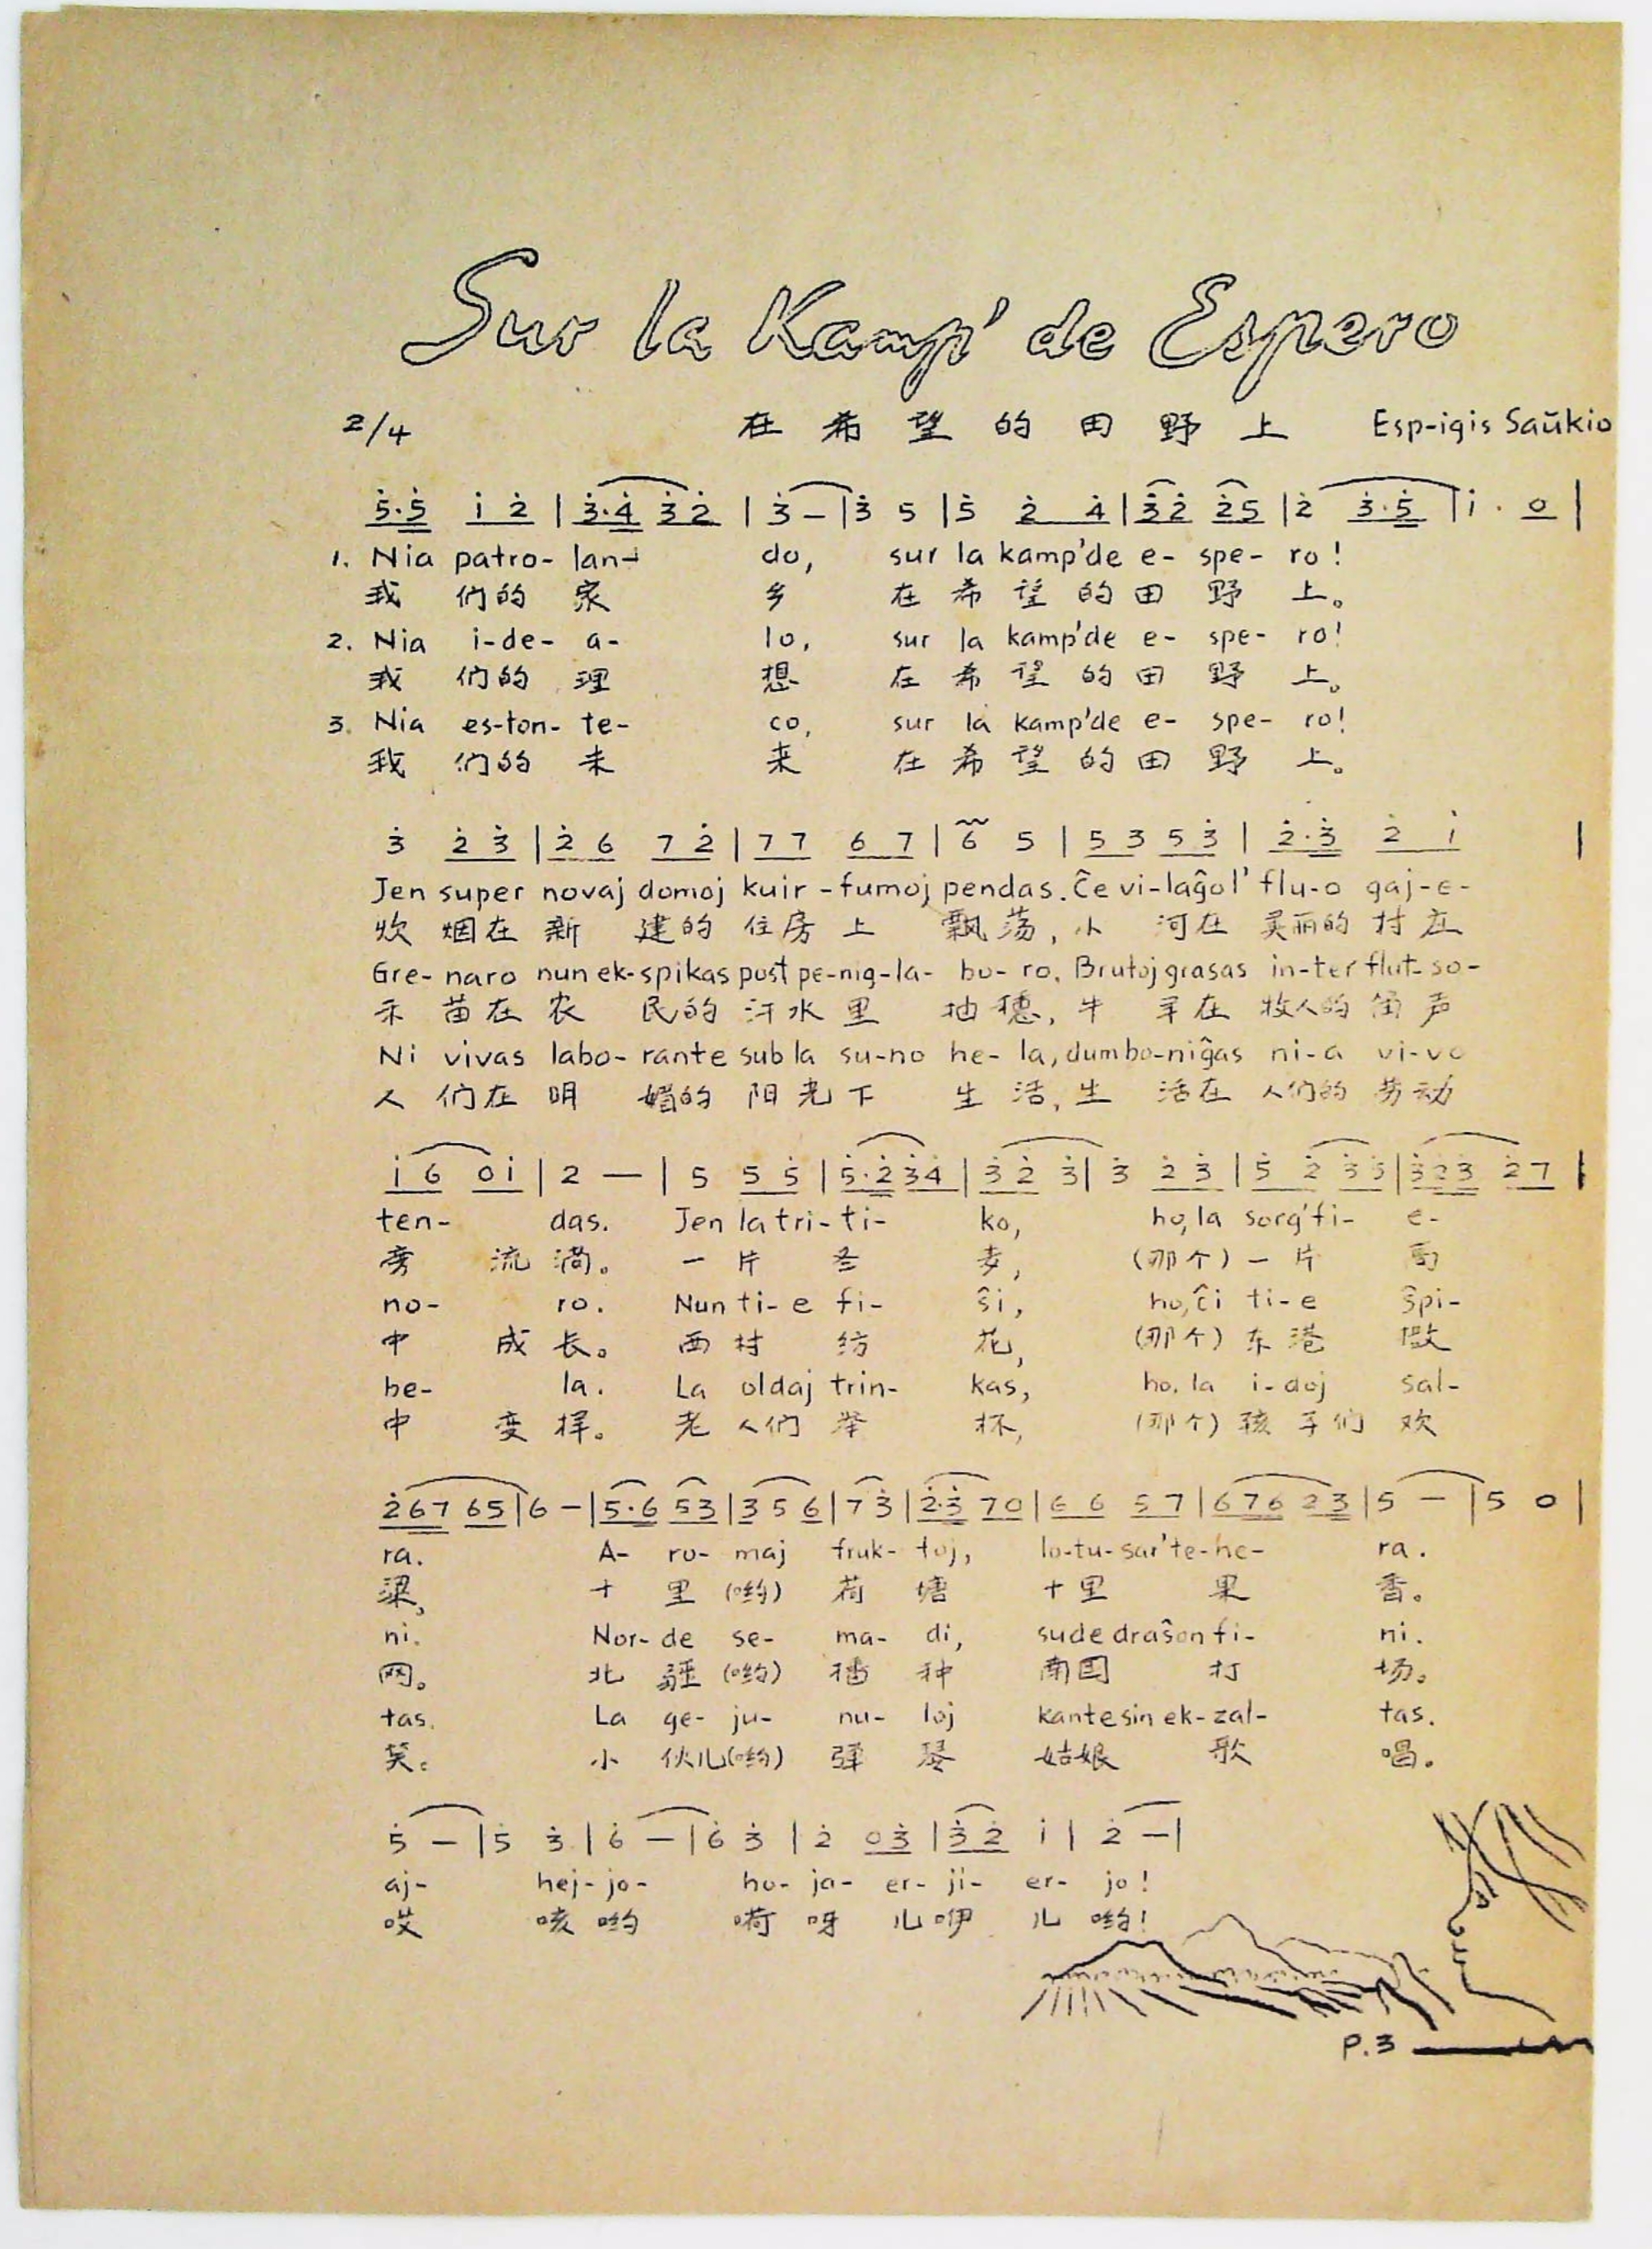 Sur la Kamp' de Espero
2/4 在希望的田野上 Esp-igis Saŭkio
5·5 1 2 | 3·4 3 2 | 3 – | 3 5 | 5 2 4 | 3 2 2 5 | 2 3·5 | 1 · 0 |
1. Nia patro- lan- do, sur la kamp'de e- spe- ro!
我 们的 家 乡 在 希 望 的 田 野 上。
2. Nia i-de- a- lo, sur la kamp'de e- spe- ro!
我 们的 理 想 在 希 望 的 田 野 上。
3. Nia es-ton- te- co, sur la kamp'de e- spe- ro!
我 们的 未 来 在 希 望 的 田 野 上。
3 2 3 | 2 6 7 2 | 7 7 6 7 | 6 5 | 5 3 5 3 | 2·3 2 1 |
Jen super novaj domoj kuir-fumoj pendas. Ĉe vi-laĝol' flu-o gaj-e-
炊 烟在 新 建的 住房 上 飘荡, 小 河在 美丽的 村庄
Gre- naro nun ek-spikas post pe-nig-la- bo- ro. Brutoj grasas in-ter flut-so-
禾 苗在 农 民的 汗水 里 抽穗, 牛 羊在 牧人的 笛声
Ni vivas labo- rante sub la su-no he- la, dum bo-niĝas ni-a vi-vo
人 们在 明 媚的 阳光 下 生 活, 生 活在 人们的 劳动
1 6 0 1 | 2 — | 5 5 5 | 5·2 3 4 | 3 2 3 | 3 2 3 | 5 2 3 5 | 3 2 3 2 7 |
ten- das. Jen la tri- ti- ko, ho, la sorg'fi- e-
旁 流 淌。 一 片 冬 麦, (那个) 一 片 高
no- ro. Nun ti- e fi- ŝi, ho, ĉi ti-e ŝpi-
中 成 长。 西 村 纺 花, (那个) 东 港 撒
be- la. La oldaj trin- kas, ho, la i-doj sal-
中 变 样。 老 人们 举 杯, (那个) 孩 子们 欢
2 6 7 6 5 | 6 – | 5·6 5 3 | 3 5 6 | 7 3 | 2·3 7 0 | 6 6 5 7 | 6 7 6 2 3 | 5 — | 5 0 |
ra. A- ro- maj fruk- toj, lo-tu-sar'te-he- ra.
粱, 十 里 (哟) 荷 塘 十里 果 香。
ni. Nor- de se- ma- di, sude draŝon fi- ni.
网。 北 疆 (哟) 播 种 南国 打 场。
tas. La ge- ju- nu- loj kante sin ek-zal- tas.
笑。 小 伙儿(哟) 弹 琴 姑娘 歌 唱。
5 — | 5 3 | 6 — | 6 3 | 2 0 3 | 3 2 1 | 2 — |
aj- hej- jo- ho- ja- er- ji- er- jo!
哎 咳 哟 嗬 呀 儿 咿 儿 哟!
P.3